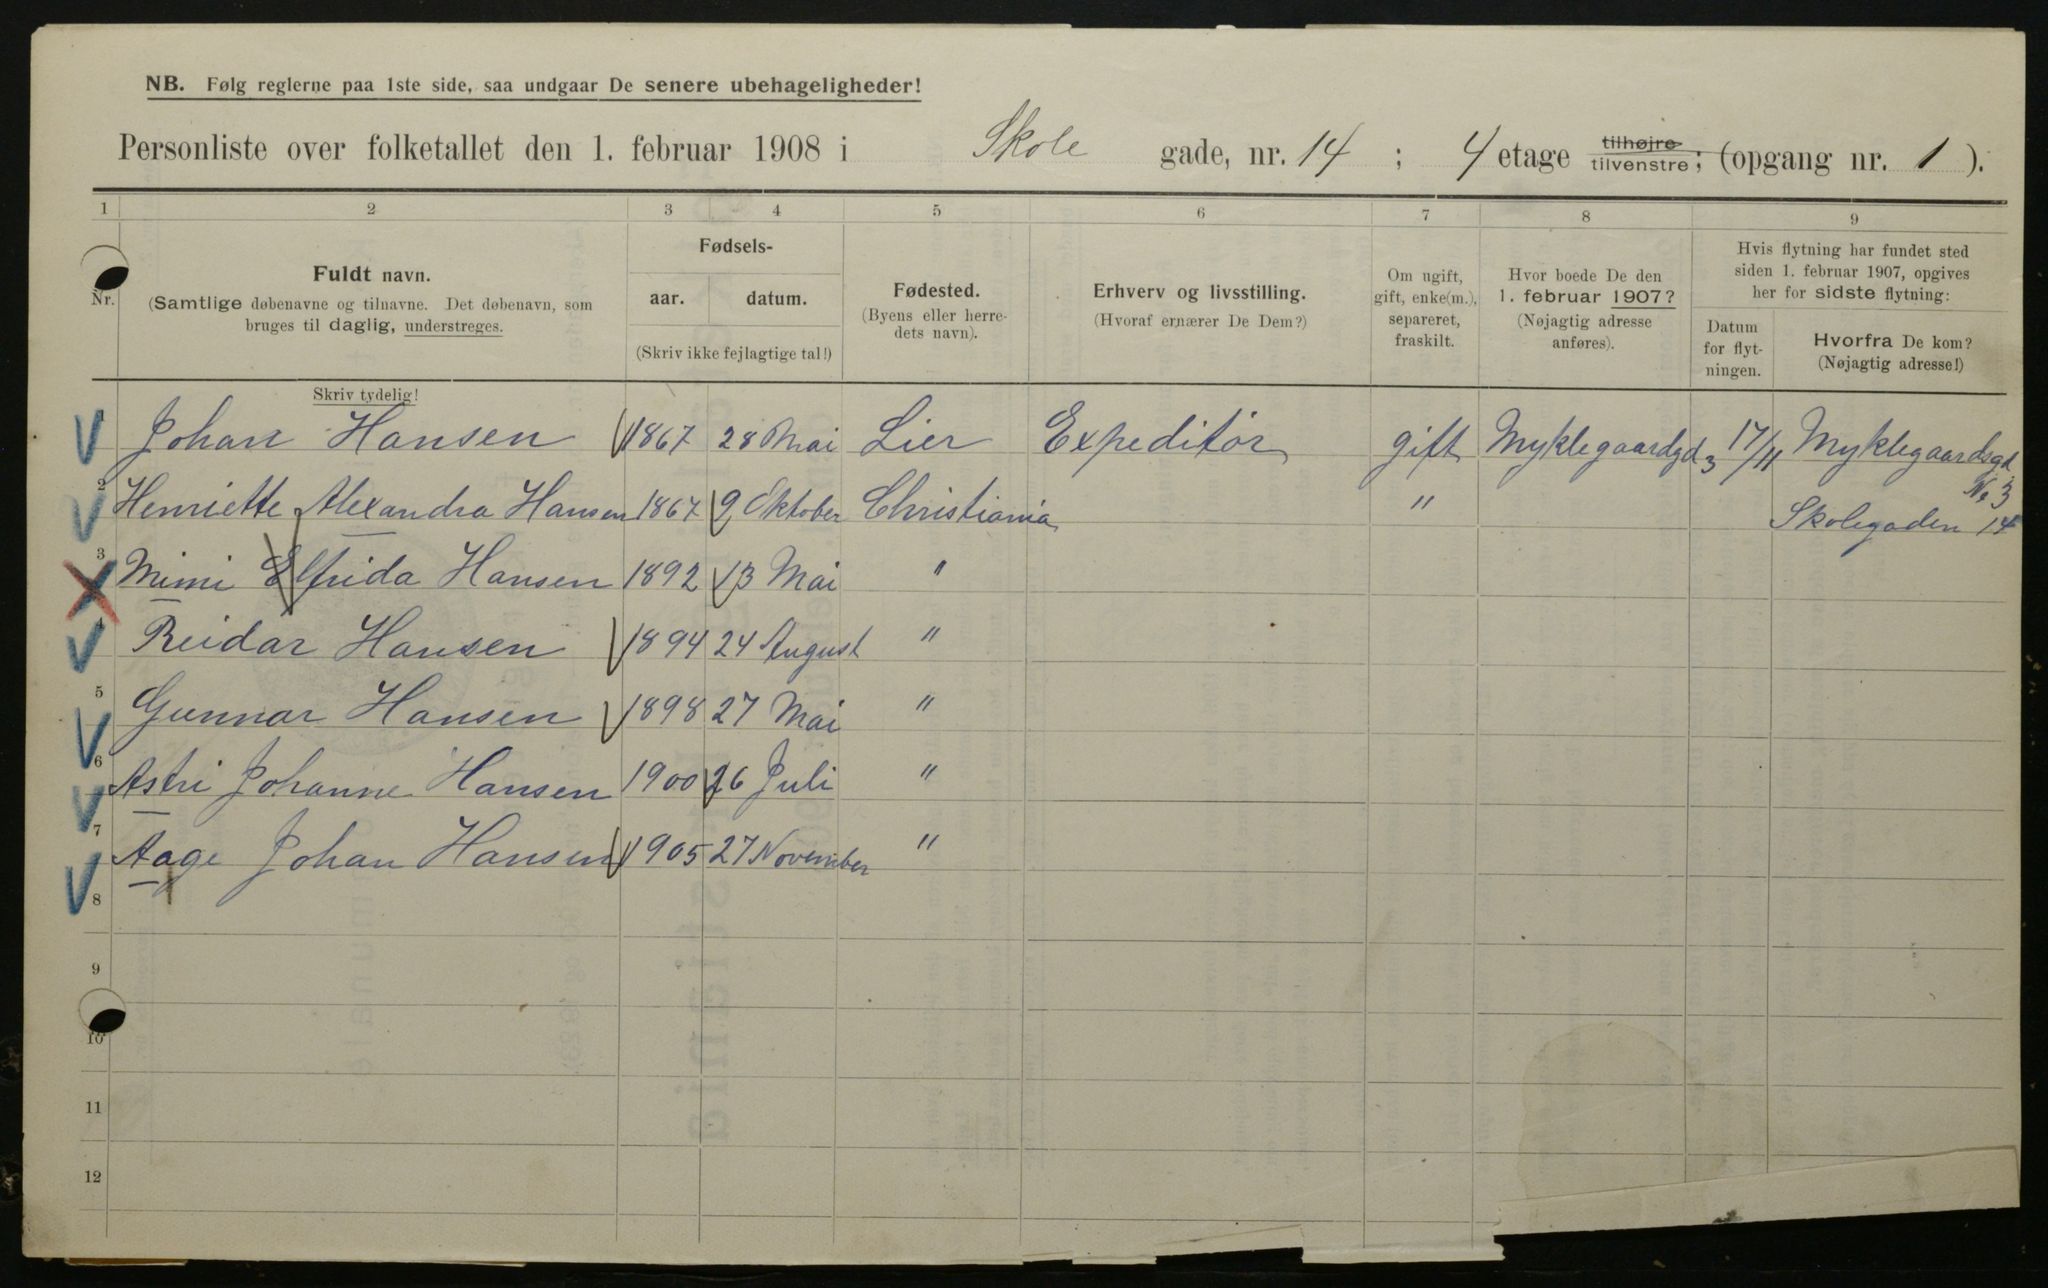 NB. Følg reglerne paa 1ste side, saa undgaar De senere ubehageligheder!
Personliste over folketallet den 1. februar 1908 i Skole gade, nr. 14 ; 4 etage tilhøjre tilvenstre ; (opgang nr. 1 ).
1 2 3 4 5 6 7 8 9
Nr.
Fuldt navn.
(Samtlige døbenavne og tilnavne. Det døbenavn, som
bruges til daglig, understreges.
Skriv tydelig!
Fødsels-
aar. datum.
(Skriv ikke fejlagtige tal!)
Fødested.
(Byens eller herre-
dets navn).
Erhverv og livsstilling.
(Hvoraf ernærer De Dem?)
Om ugift,
gift, enke(m.),
separeret,
fraskilt.
Hvor boede De den
1. februar 1907?
(Nøjagtig adresse
anføres).
Hvis flytning har fundet sted
siden 1. februar 1907, opgives
her for sidste flytning:
Datum
for flyt-
ningen.
Hvorfra De kom?
(Nøjagtig adresse!)
1 Johan Hansen 1867 28 Mai Lier Expeditør gift Myklegaardgd 3 17/11 Myklegaardsgd
No 3
2 Henriette Alexandra Hansen 1867 9 Oktober Christiania " Skolegaden 14
3 Mimi Elfrida Hansen 1892 13 Mai "
4 Reidar Hansen 1894 24 August "
5 Gunnar Hansen 1898 27 Mai "
6 Astri Johanne Hansen 1900 26 Juli "
7 Aage Johan Hansen 1905 27 November "
8
9
10
11
12